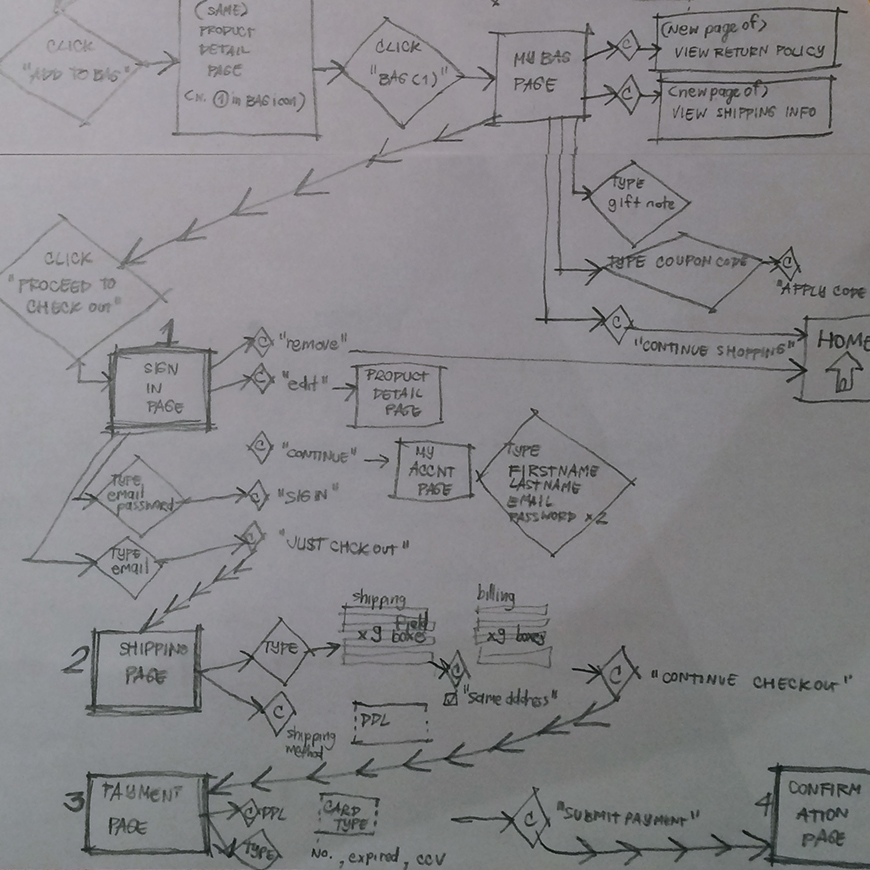 CLICK
"ADD TO BAG"
(SAME)
PRODUCT
DETAIL
PAGE
(w. ① in BAG icon)
CLICK
"BAG (1)"
MY BAG
PAGE
C
(New page of)
VIEW RETURN POLICY
C
(new page of)
VIEW SHIPPING INFO
TYPE
gift note
TYPE COUPON CODE
C
"APPLY CODE
C
"CONTINUE SHOPPING"
HOME
CLICK
"PROCEED TO
CHECK OUT"
1
SIGN
IN
PAGE
C
"remove"
C
"edit"
PRODUCT
DETAIL
PAGE
C
"CONTINUE"
MY
ACCNT
PAGE
TYPE
FIRSTNAME
LASTNAME
EMAIL
PASSWORD x2
TYPE
email
password
C
"SIGN IN"
TYPE
email
C
"JUST CHCK OUT"
2
SHIPPING
PAGE
TYPE
shipping
field
x9 boxes
billing
x9 boxes
C
"same address"
C
shipping
method
DDL
C
"CONTINUE CHECKOUT"
3
PAYMENT
PAGE
C
DDL
TYPE
CARD
TYPE
No., expired, ccv
C
"SUBMIT PAYMENT"
4
CONFIRM
ATION
PAGE